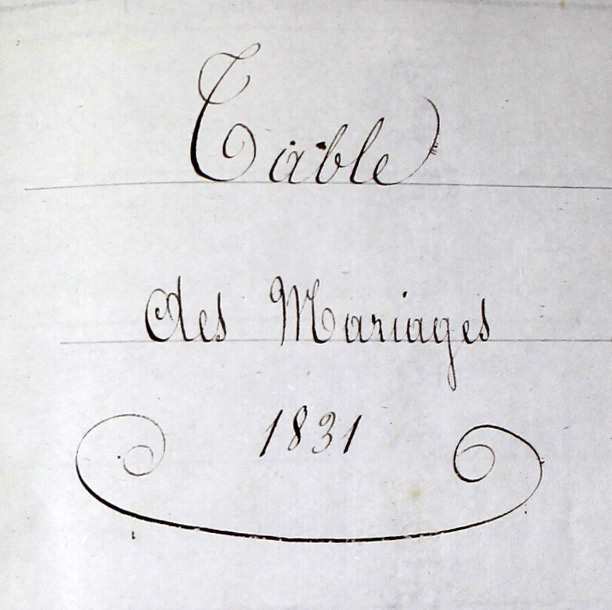 Table
des Mariages
1831